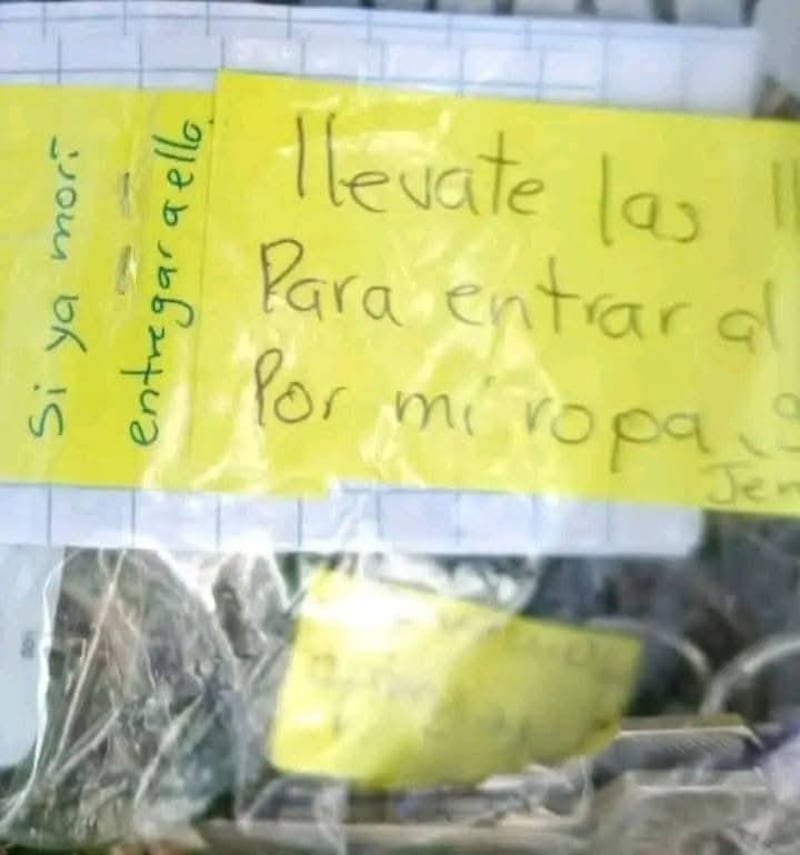 Si ya morí
entregar a ello
llevate las
Para entrar al
Por mi ropa